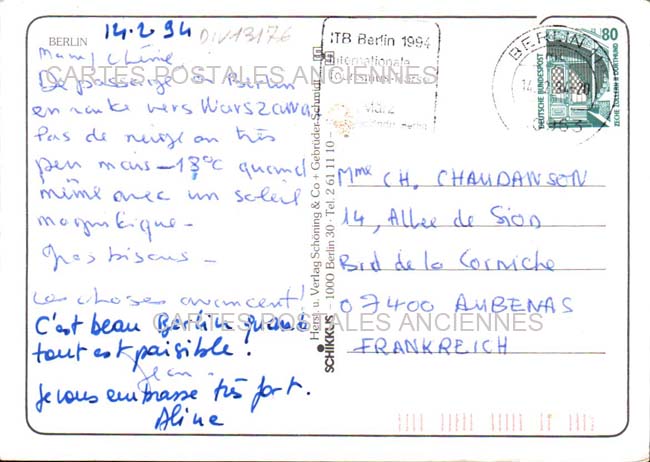 BERLIN
14.2.94
DIV13176
Mamy chérie,
De passage à Berlin
en route vers Warszawa
Pas de neige ou très
peu mais -13°C quand
même avec un soleil
magnifique -
Gros bisous -
Les choses avancent!
Jean -
C'est beau Berlin quand
tout est paisible.
Je vous embrasse très fort.
Aline
CARTES POSTALES ANCIENNES
CARTES POSTALES ANCIENNES
SCHIKKUS
Herst. u. Verlag Schöning & Co + Gebrüder Schmidt
– 1000 Berlin 30 · Tel. 2 61 11 10 –
ITB Berlin 1994
Internationale
März
BERLIN
DEUTSCHE BUNDESPOST
80
ZECHE ZOLLERN II DORTMUND
Mme CH. CHAUDANSON
14, Allée de Sion
Bd de la Corniche
07400 AUBENAS
FRANKREICH